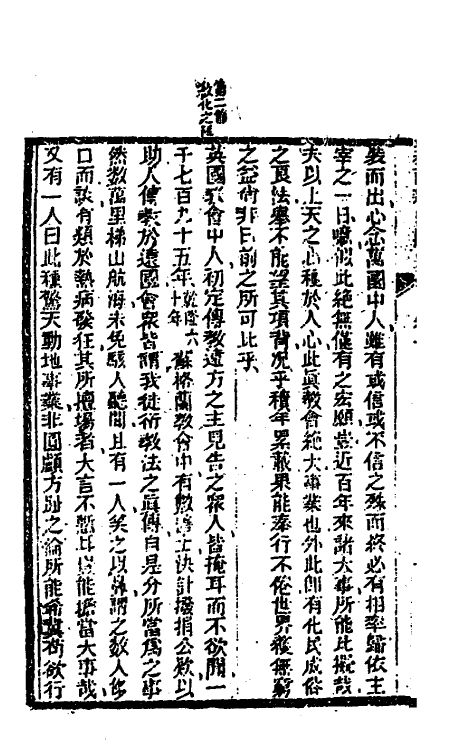 第二節
教化之
裝而出心念萬國中人雖有或信或不信之殊而終必有相率歸依主
宰之一日噫似此絕無僅有之宏願豈近百年來諸大事所能比擬哉
夫以上天之心種於人心此眞教會絕大事業也外此卽有化民成俗
之良法舉不能望其項背况乎積年累載果能奉行不倦世界獲無窮
之益尙非目前之所可比乎
英國教會中人初定傳教遠方之主見告之衆人皆掩耳而不欲聞一
千七百九十五年乾隆六十年蘇格蘭教會中有數善士決計撥捐公欵以
助人傳教於遠國會衆皆謂我徒衍教法之眞傳自是分所當爲之事
然數萬里梯山航海未免駭人聽聞且有一人笑之以鼻謂之數人
口而談有類於熱病發狂其所擅塲者大言不慙耳豈能擔當大事哉
又有一人曰此種驚天動地事業非圓顱方趾之倫所能希冀稍欲行